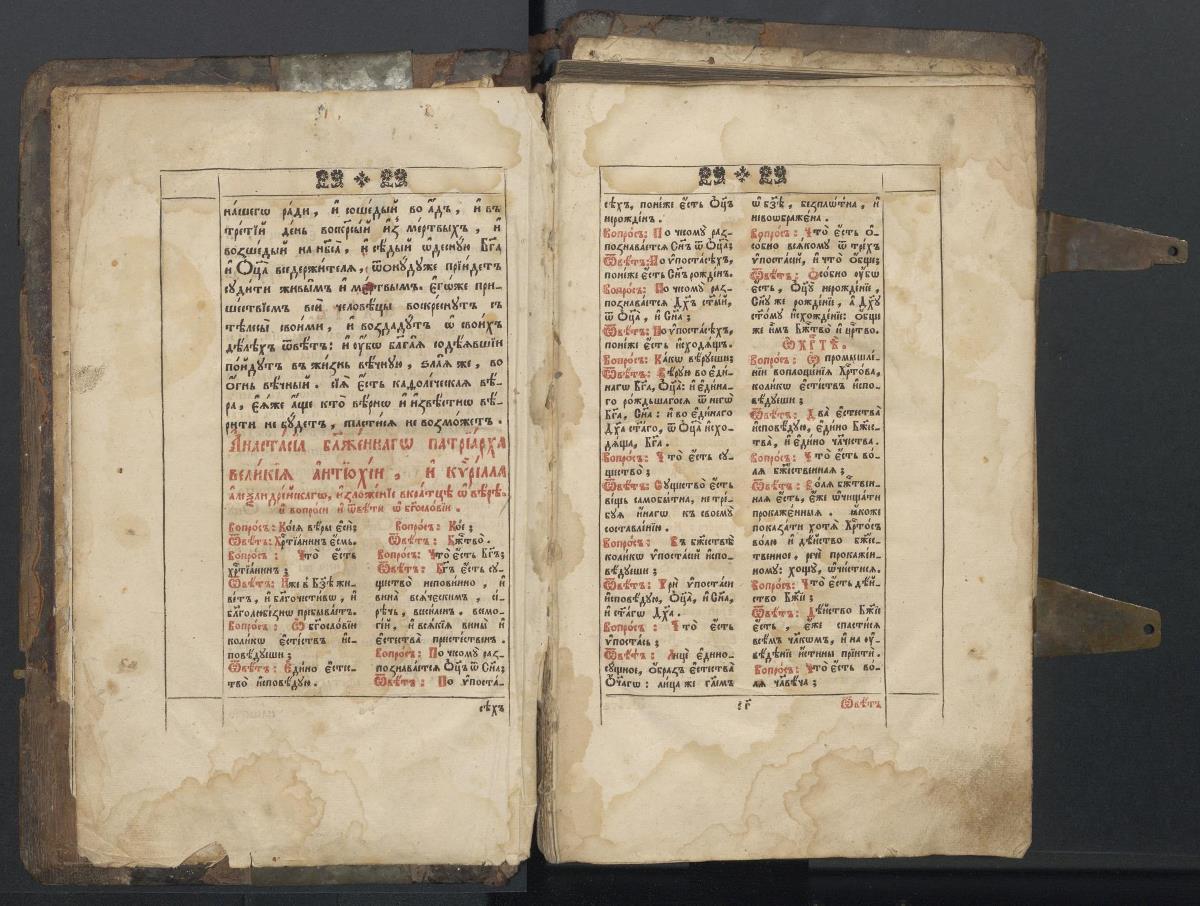 на́шегѡ ра́ди , и҆ соше́дый во а҆́дъ , и҆ въ
тре́тїй де́нь воскр҃сый и҆з̾ ме́ртвыхъ , и҆
возше́дый на нб҃са̀ , и҆ сѣдѧ́й ѡ҆десну́ю Бг҃а
и҆ Оц҃а̀ вседержи́телѧ , ѿону́дуже прїи́детъ
суди́ти живы́мъ и҆ ме́ртвымъ . є҆гѡ́же при-
ше́ствїемъ всѝ человѣ́цы воскре́снутъ съ
тѣлесы̀ свои́ми , и҆ воздадѧ́тъ ѡ҆ свои́хъ
дѣ́лѣхъ ѿвѣ́тъ : и҆ ᲂу҆́бѡ бл҃га̑ѧ содѣ́ѧвшїи
по́йдутъ въ жи́знь вѣ́чную , ѕла̑ѧ же , во
о҆́гнь вѣ́чный . сїѧ̀ є҆́сть каѳоли́ческаѧ вѣ́-
ра , є҆ѧ́же а҆́ще кто̀ вѣ́рнѡ и҆ и҆звѣ́стнѡ вѣ́-
рити не бу́детъ , спасти́сѧ не возмо́жетъ .
А҆наста́сїа бл҃же́ннагѡ патрїа́рха
вели́кїѧ а҆нтїохі́и , и҆ кѷрі́лла
а҆леѯандрі́йскагѡ, и҆зложе́нїе вкра́тцѣ ѡ҆ вѣ́рѣ.
и҆ вопро́си и҆ ѿвѣ́ти ѡ҆ бг҃осло́вїи .
Вопро́съ : Ко́еѧ вѣ́ры є҆сѝ ;
Ѿвѣ́тъ : Хрⷭ҇тїа́нинъ є҆́смь.
Вопро́съ : Что̀ є҆́сть
хрⷭ҇тїа́нинъ ;
Ѿвѣ́тъ : И҆́же в̾ Бз҃ѣ жи-
ве́тъ , и҆ бл҃гоче́стивѡ , и҆
бл҃голюбе́знѡ пребыва́етъ.
Вопро́съ : Ѡ҆ бг҃осло́вїи
коли́кѡ є҆сте́ствъ и҆с-
повѣ́дуеши ;
Ѿвѣ́тъ : Є҆ди́но є҆стес-
тво̀ и҆сповѣ́дую .
Вопро́съ : Ко́е ;
Ѿвѣ́тъ : Бж҃тво̀ .
Вопро́съ : Что̀ є҆́сть Бг҃ъ ;
Ѿвѣ́тъ : Бг҃ъ є҆́сть су-
щество̀ непови́нно , и҆
вина̀ всѧ́ческимъ , сі-
рѣ́чь , всеси́ленъ . всемо-
гі́й , и҆ всѧ́кїѧ вины̀ и҆
є҆стества̀ пресꙋ́щественъ .
Вопро́съ : По чесому̀ раз-
познава́етсѧ Оц҃ъ ѿ Сн҃а ;
Ѿвѣ́тъ : По ѵ҆поста́-
сѣхъ
сѣхъ , поне́же є҆́сть Оц҃ъ
нерожде́нъ .
Вопро́съ : По чесому̀ раз-
познава́етсѧ Сн҃ъ ѿ Оц҃а̀ ;
Ѿвѣ́тъ : По ѵ҆поста́сѣхъ,
поне́же є҆́сть Сн҃ъ рожде́нъ .
Вопро́съ : По чесому̀ раз-
познава́етсѧ Дх҃ъ ст҃ы́й ,
ѿ Оц҃а̀ , и҆ Сн҃а ;
Ѿвѣ́тъ : По ѵ҆поста́сѣхъ ,
поне́же є҆́сть и҆сходѧ́щъ .
Вопро́съ : Ка́кѡ вѣ́руеши ;
Ѿвѣ́тъ : Вѣ́рую во є҆ди́-
нагѡ Бг҃а , Оц҃а̀ : и҆ є҆ди́на-
го ро́ждьшагосѧ ѿ негѡ̀
Бг҃а , Сн҃а : и҆ во є҆ди́наго
Дх҃а ст҃а́го , ѿ Оц҃а̀ и҆схо-
дѧ́ща , Бг҃а .
Вопро́съ : Что̀ є҆́сть су-
щество̀ ;
Ѿвѣ́тъ : Существо̀ є҆́сть
ве́щь самобы́тна , не тре́-
буѧ и҆на́гѡ къ своему̀
составле́нїю .
Вопро́съ : Въ бж҃ествѣ̀
коли́кѡ ѵ҆поста́сей и҆спо-
вѣ́дуеши ;
Ѿвѣ́тъ : Трѝ ѵ҆поста́си
и҆сповѣ́дую , Оц҃а̀ , и҆ Сн҃а ,
и҆ ст҃а́гѡ Дх҃а .
Вопро́съ : Что̀ є҆́сть
ѵ҆поста́сь ;
Ѿвѣ́тъ : Лицѐ є҆дино-
су́щное , о҆́бразъ є҆стества̀
Оч҃агѡ : ли́ца же гл҃емъ
ѡ҆ бз҃ѣ , безпло́тна , и҆
неѡбраже́на .
Вопро́съ : Что̀ є҆́сть о҆-
со́бно всѧ́кому ѿ трїе́хъ
ѵ҆поста́сей , и҆ что̀ о҆́бще ;
Ѿвѣ́тъ : Осо́бно ᲂу҆́бѡ
є҆́сть , Оц҃у̀ нерожде́нїе ,
Сн҃у же рожде́нїе , а҆ Дх҃у
ст҃о́му и҆схожде́нїе : о҆́бще
же и҆̀мъ Бж҃тво̀ и҆ цр҃тво.
Ѡ҆ Хрⷭ҇тѣ̀ .
Вопро́съ : Ѡ҆ промышле́-
нїи воплоще́нїѧ Хрⷭ҇то́ва ,
коли́кѡ є҆сте́ствъ и҆спо-
вѣ́дуеши ;
Ѿвѣ́тъ : Два̀ є҆стества̀
и҆сповѣ́дую , є҆ди́но Бж҃ес-
тва̀ , и҆ є҆ди́но чл҃чества .
Вопро́съ : Что̀ є҆́сть во́-
лѧ бж҃е́ственнаѧ ;
Ѿвѣ́тъ : Во́лѧ бж҃твен-
наѧ є҆́сть , є҆́же ѡ҆чища́ти
прокаже́нныѧ . ꙗ҆́коже
показа́ти хотѧ̀ Хрⷭ҇то́съ
во́лю и҆ дѣ́йство бж҃ес-
твенное , речѐ прокаже́н-
ному : хощу̀ , ѡ҆чи́стисѧ .
Вопро́съ : Что̀ є҆́сть дѣ́й-
ство Бж҃їе ;
Ѿвѣ́тъ : Дѣ́йство Бж҃їе
є҆́сть , є҆́же спасти́сѧ
всѣ̑мъ чл҃кѡмъ , и҆ на ᲂу҆-
вѣ́дѣнїе и҆́стины прїитѝ .
Вопро́съ : Что̀ є҆́сть во́-
лѧ чл҃вѣча ;
Ѿвѣ́тъ